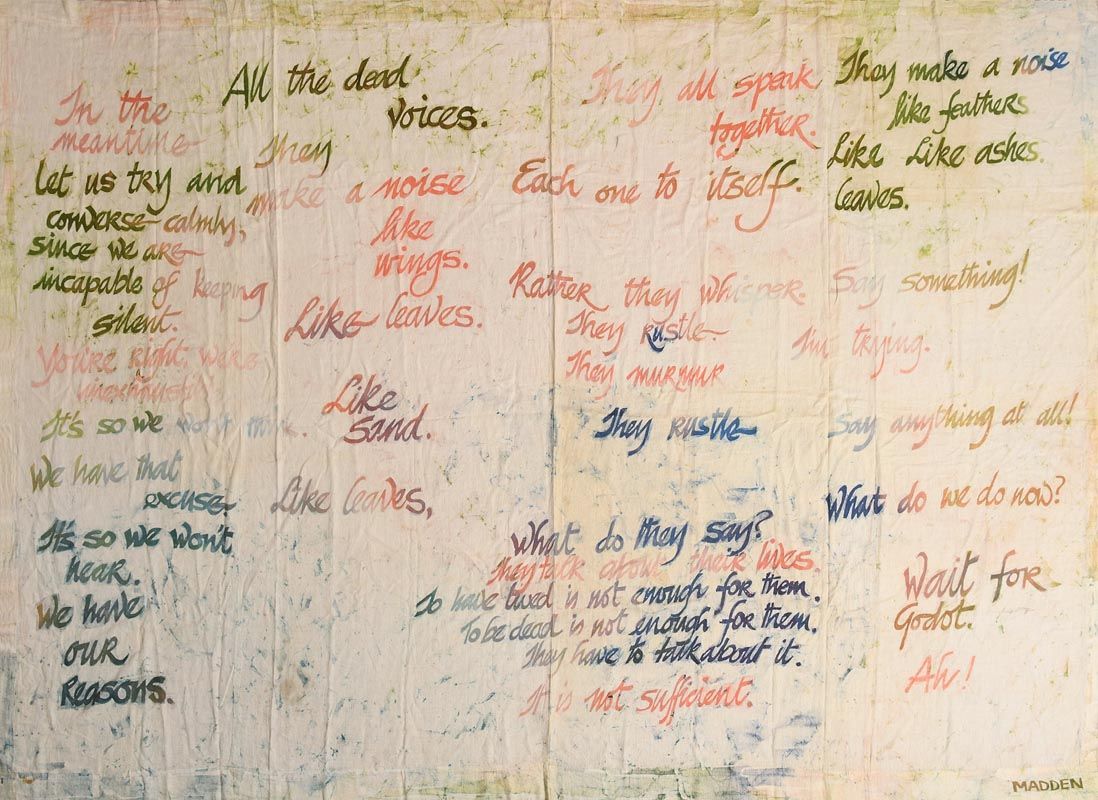 In the
meantime
let us try and
converse calmly,
since we are
incapable of keeping
silent.
You're right, we're
inexhaustible
It's so we won't think.
We have that
excuse
It's so we won't
hear.
We have
our
Reasons.
All the dead
voices.
They
make a noise
like
wings.
Like leaves.
Like
Sand.
Like leaves,
They all speak
together.
Each one to itself.
Rather they whisper.
They rustle
They murmur
They rustle
What do they say?
They talk about their lives.
To have lived is not enough for them.
To be dead is not enough for them.
They have to talk about it.
It is not sufficient.
They make a noise
like feathers
Like Like ashes.
leaves.
Say something!
I'm trying.
Say anything at all!
What do we do now?
Wait for
Godot.
Ah!
MADDEN